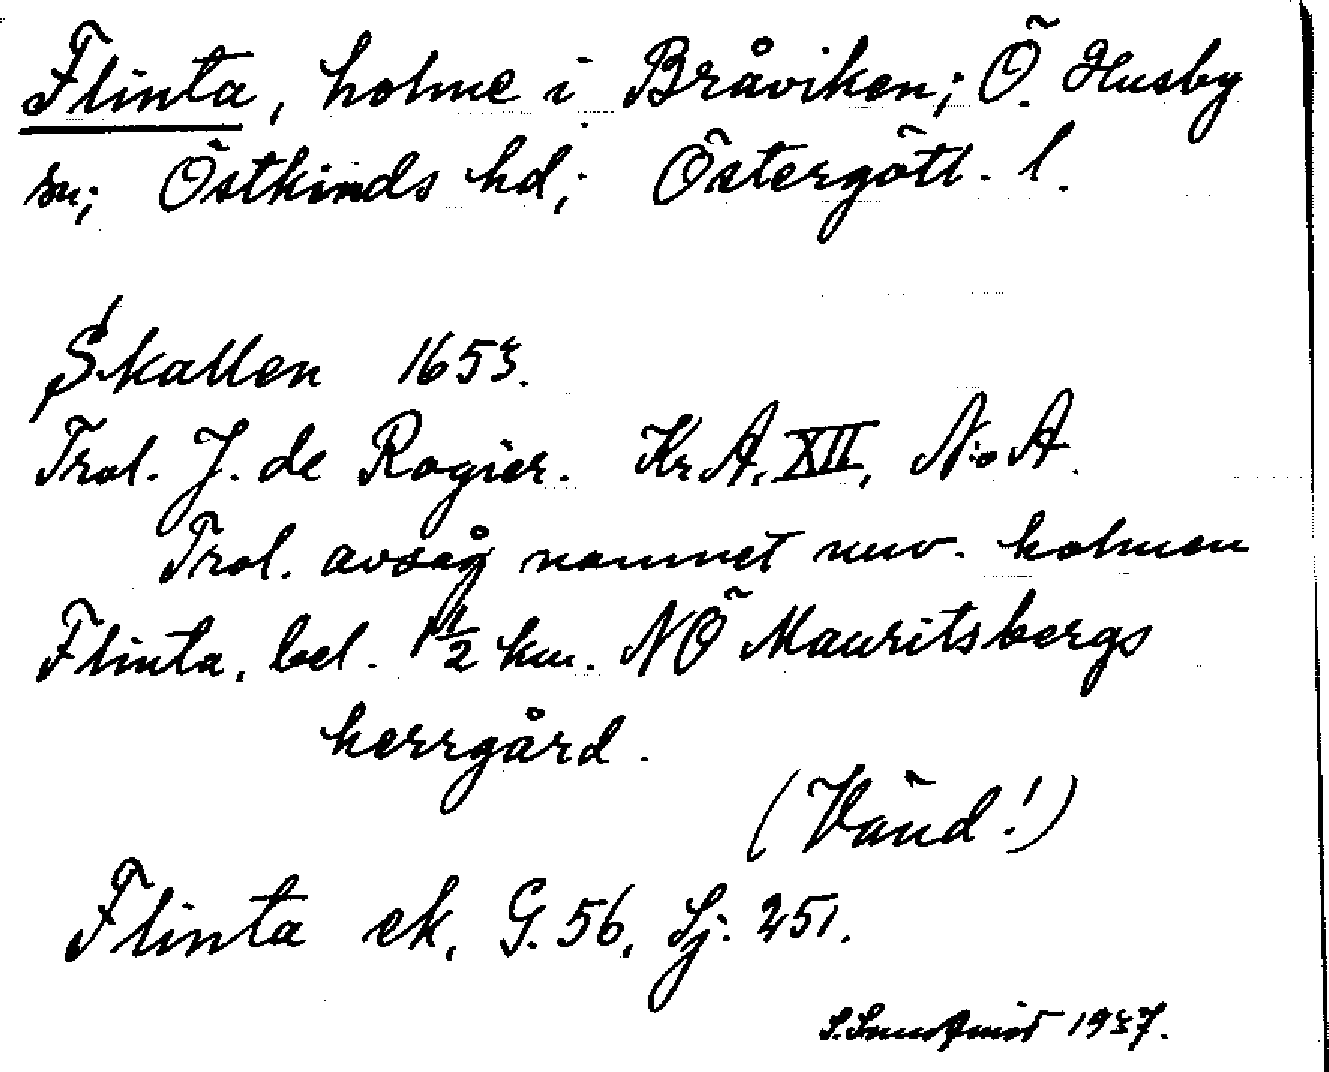 Flinta, holme i Bråviken; Ö. Husby
sn; Östkinds hd; Östergötl. l.
Skallen 1653.
Trol. J. de Rogier. Kr.A. XII, N:o A.
Trol. avsåg namnet nuv. holmen
Flinta, bel. 1 1/2 km. NÖ Mauritsbergs
herrgård.
(Vänd!)
Flinta ek. G. 56, Sj. 251.
1937.